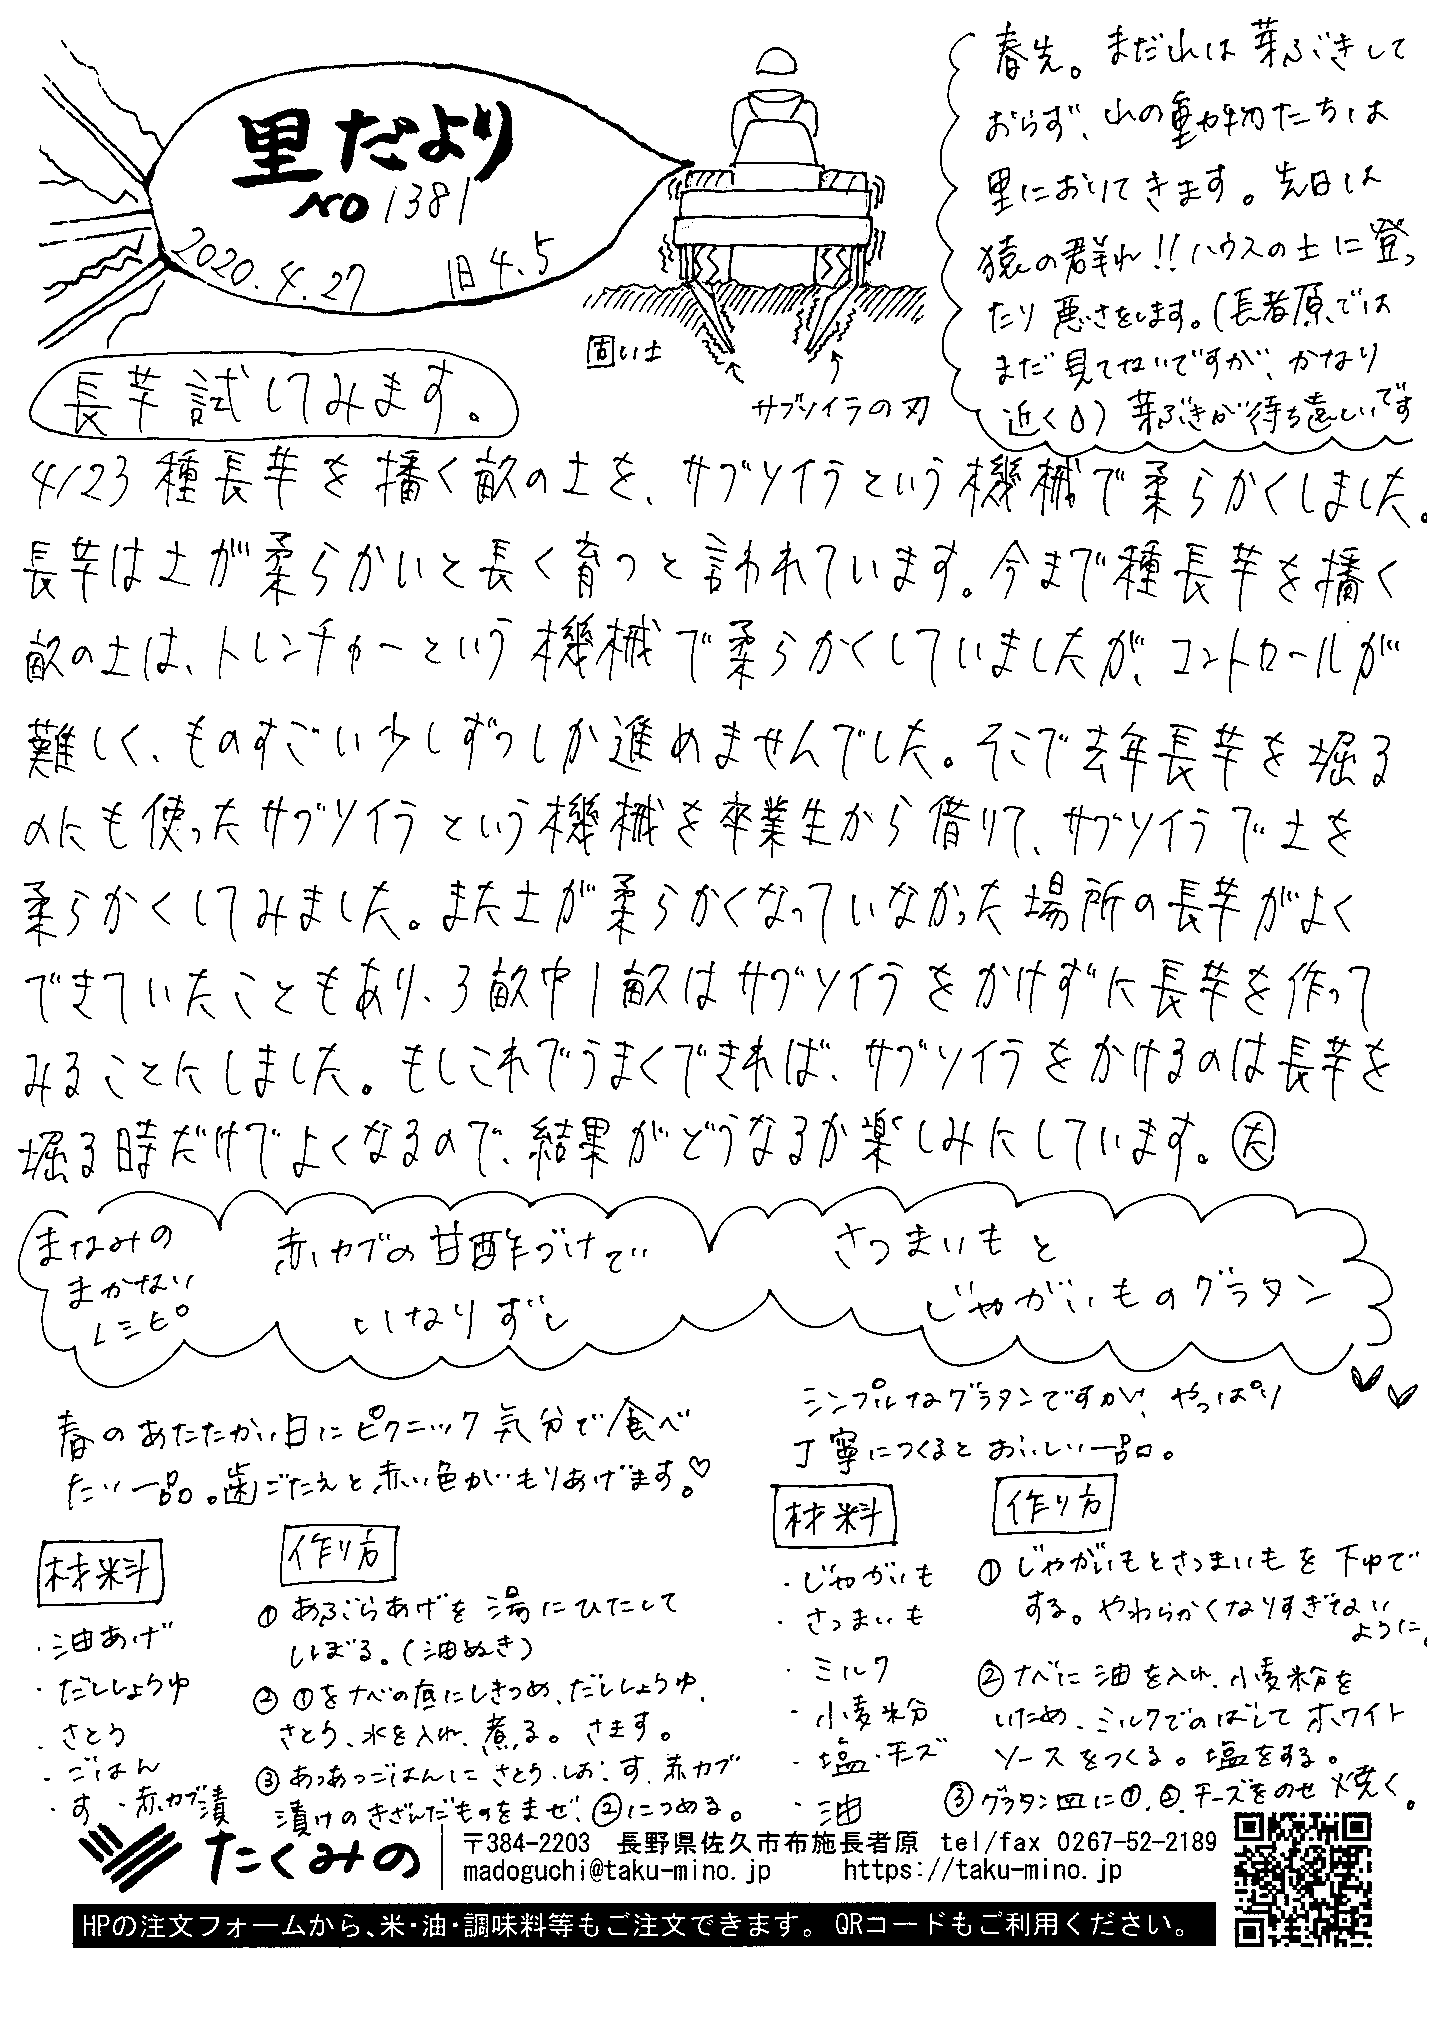 里だより
NO 1381
2020.4.27 旧4.5
固い土
サブソイラの刃
春先。まだ山は芽ぶきして
おらず、山の動物たちは
里におりてきます。先日は
猿の群れ!!ハウスの上に登っ
たり悪さをします。(長者原では
まだ見てないですが、かなり
近く◊)芽ぶきが待ち遠しいです
長芋試してみます。
4/23 種長芋を播く畝の土を、サブソイラという機械で柔らかくしました。
長芋は土が柔らかいと長く育つと言われています。今まで種長芋を播く
畝の土は、トレンチャーという機械で柔らかくしていましたが、コントロールが
難しく、ものすごい少しずつしか進めませんでした。そこで去年長芋を堀る
のにも使ったサブソイラという機械を卒業生から借りて、サブソイラで土を
柔らかくしてみました。また土が柔らかくなっていなかった場所の長芋がよく
できていたこともあり、3畝中1畝はサブソイラをかけずに長芋を作って
みることにしました。もしこれでうまくできれば、サブソイラをかけるのは長芋を
堀る時だけでよくなるので、結果がどうなるか楽しみにしています。㊛
まなみの
まかない
レシピ
赤カブの甘酢づけで
いなりずし
春のあたたかい日にピクニック気分で食べ
たい一品。歯ごたえと赤い色がいもりあげます。♡
材料
・油あげ
・だししょうゆ
・さとう
・ごはん
・す ・赤カブ漬
作り方
① あぶらあげを湯にひたして
しぼる。(油ぬき)
② ①をナベの底にしきつめ、だししょうゆ、
さとう、水を入れ、煮る。さます。
③ あつあつごはんにさとう、しお、す、赤カブ
漬けのきざんだものをまぜ、②につめる。
さつまいもと
じゃがいものグラタン
シンプルなグラタンですが、やっぱり
丁寧につくるとおいしい一品。
材料
・じゃがいも
・さつまいも
・ミルク
・小麦粉
・塩・チーズ
・油
作り方
① じゃがいもとさつまいもを下ゆで
する。やわらかくなりすぎない
ように。
② ナベに油を入れ、小麦粉を
いため、ミルクでのばしてホワイト
ソースをつくる。塩をする。
③ グラタン皿に①、②、チーズをのせ焼く。
たくみの
〒384-2203 長野県佐久市布施長者原 tel/fax 0267-52-2189
madoguchi@taku-mino.jp https://taku-mino.jp
HPの注文フォームから、米・油・調味料等もご注文できます。QRコードもご利用ください。